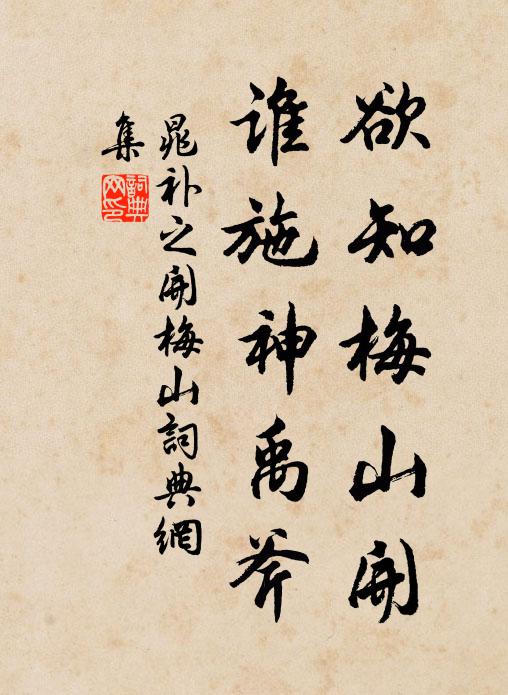 欲知梅山開
誰施神禹斧
晁补之開梅山詞典網
集
詞典
网印